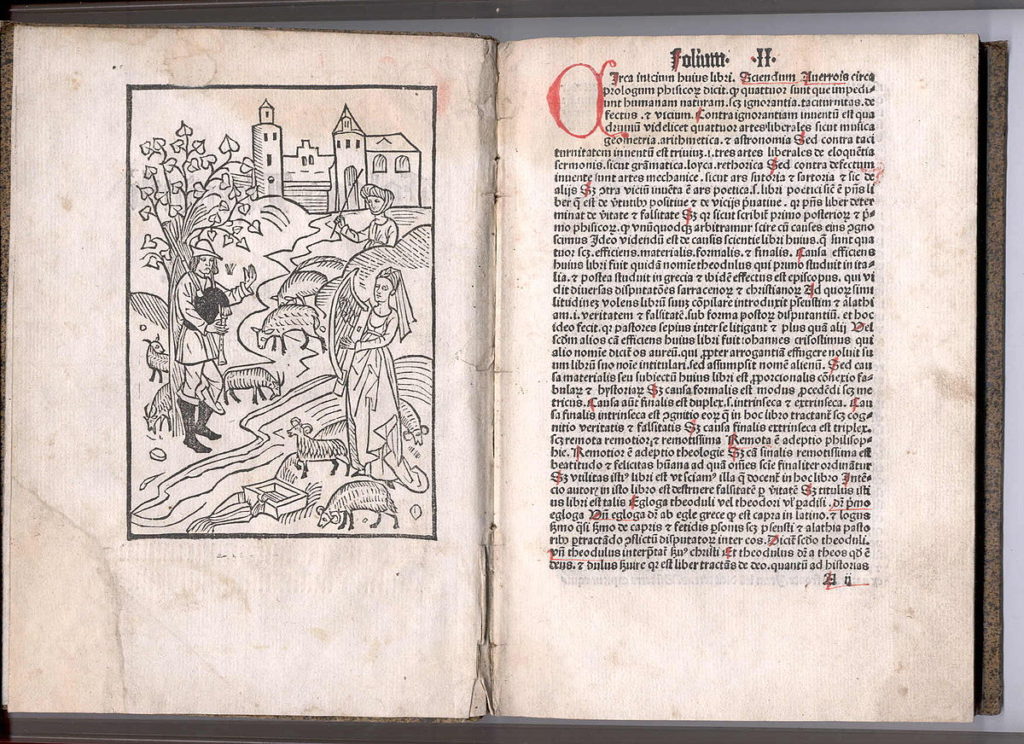 Folium .II.
Irca inicium huius libri. Sciendum Auerrois circa
prologum phisicoꝝ dicit. ꝙ quattuor sunt que impedi-
unt humanam naturam. scꝫ ignorantia. taciturnitas. de
fectus. ⁊ vicium. Contra ignorantiam inuentũ est qua
druuiũ videlicet quattuor artes liberales sicut musica
geometria. arithmetica. ⁊ astronomia Sed contra taci
turnitatem inuentũ est triuiũ .i. tres artes liberales de eloquẽtia
sermonis. sicut grãmatica. loyca. rethorica Sed contra defectum
inuente sunt artes mechanice. sicut ars sutoria ⁊ sartoria ⁊ sic de
alijs Sꝫ ↄtra viciũ inuẽta ẽ ars poetica. s. libri poetici sic ẽ p̃ns li
ber ꝗ est de v̾tutibꝰ positiue ⁊ de vicijs p̾uatiue. ꝙ p̃ns liber deter
minat de v̾itate ⁊ falsitate Sꝫ qꝛ sicut scribit̃ primo posterioꝝ ⁊ p̾-
mo phisicoꝝ. ꝙ vnũquodqꝫ arbitramur scire cũ causas eius ↄgno
scimus Ideo videndũ est de causis scientie libri huius. ꝗ̃ sunt qua
tuor scꝫ. efficiens. materialis. formalis. ⁊ finalis. Causa efficiens
huius libri fuit quidã noĩe theodulus qui primo studuit in ita-
lia. ⁊ postea studuit in grecia ⁊ ibidẽ effectus est episcopus. qui vi
dit diuersas disputatões sarracenoꝝ ⁊ christianoꝝ Ad quoꝝ simi
litudinẽ volens librũ suũ cõpilare introduxit pseustim ⁊ alathi
am .i. veritatem ⁊ falsitatẽ. sub forma pastoꝝ disputantiũ. et hoc
ideo fecit. qꝛ pastores sepius inter se litigant ⁊ plus quã alij Vel
scd̃m alios cã efficiens huius libri fuit iohannes crisostimus qui
alio nomĩe dicit̃ os aureũ. qui ꝓpter arrogantiã effingere noluit su
um librũ suo noĩe intitulari. sed assumpsit nomẽ alienũ. Sed cau
sa materialis seu subiectũ huius libri est ꝓporcionalis cõnexio fa-
bulaꝝ ⁊ hystoriaꝝ Sꝫ causa formalis est modus ꝓcedẽdi scꝫ me
tricus. Causa aũt finalis est duplex. s. intrinseca ⁊ extrinseca. Cau
sa finalis intrinseca est ↄgnitio eoꝝ ꝗ̃ in hoc libro tractant̃ scꝫ cog-
nitio veritatis ⁊ falsitatis Sꝫ causa finalis extrinseca est triplex.
scꝫ remota remotioꝛ ⁊ remotissima Remota ẽ adeptio philosop-
hie. Remotior ẽ adeptio theologie Sꝫ cã finalis remotissima est
beatitudo ⁊ felicitas hũana ad quã om̃es scĩe finaliter ordinãtur
Sꝫ vtilitas istiꝰ libri est vt sciam̃ illa ꝗ̃ docent̃ in hoc libro Intẽ-
cio autoꝝ in isto libro est destruere falsitatẽ ꝑ v̾itatẽ Sꝫ titulus isti
us libri est talis Egloga theoduli vel theodori vl̾ padisi. Dr̃ p̾mo
egloga Vñ egloga dr̃ ab egle grece ꝙ est capra in latino. ⁊ logus
s̾mo q̃si s̾mo de capris ⁊ fetidis ꝑsonis scꝫ pseusti ⁊ alathia pasto
ribꝰ ꝑtractãdo ↄflictũ disputatoꝝ inter eos. Dicit̃ scd̃o theoduli.
vñ theodulus interp̾tat̃ s̾uꝰ christi Et theodulus dr̃ a theos qd̾ ẽ
deus. ⁊ dulus s̾uire qꝛ est liber tractãs de deo. quantũ ad historias
A ij